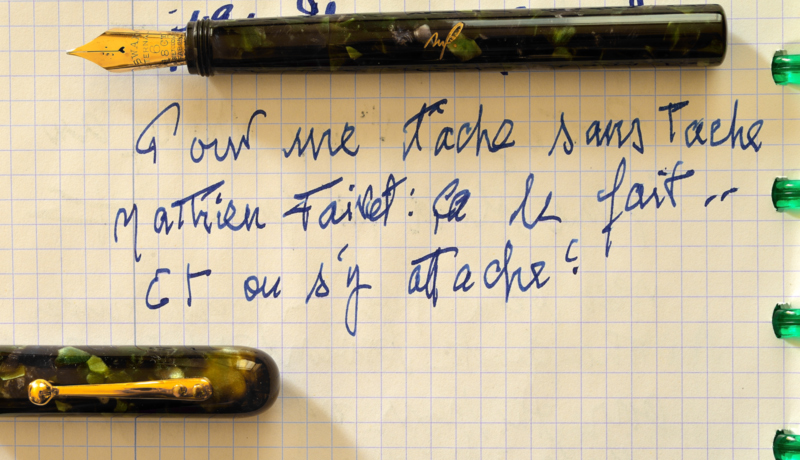 Pour une tache sans Tache
Mathieu : ça le fait..
Et on s'y attache!